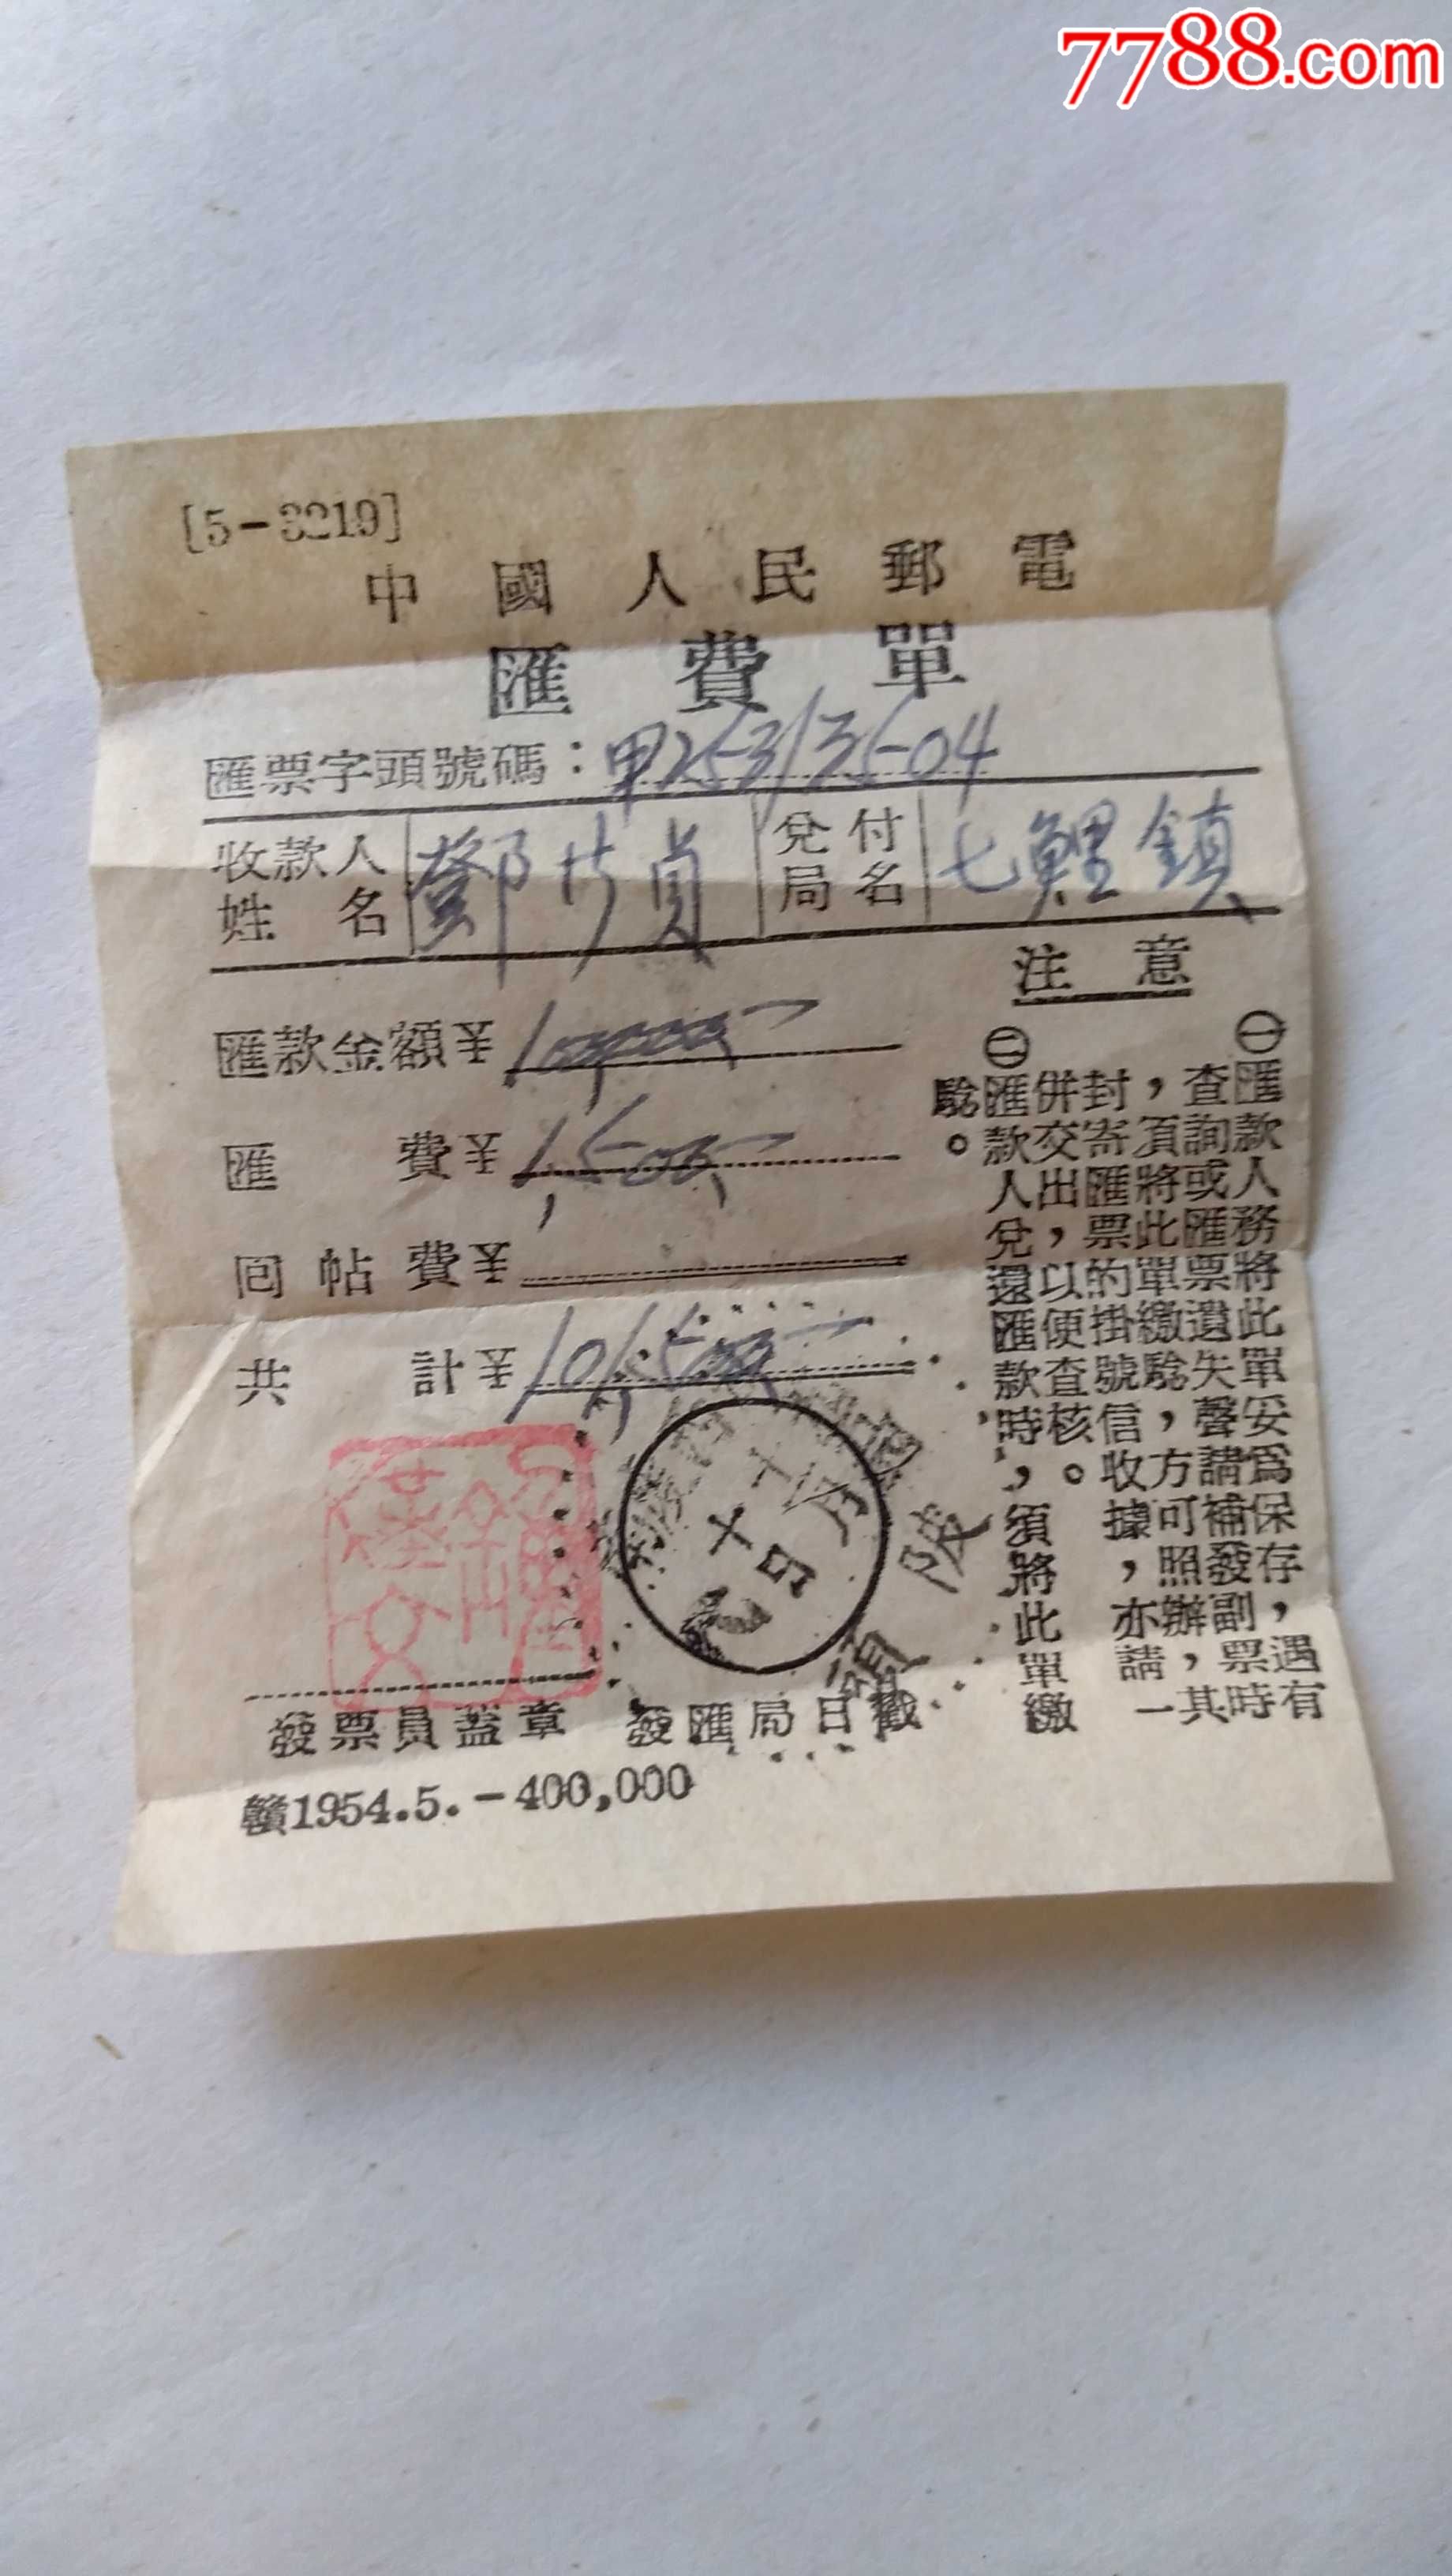 7788.com
[5-3219]
中國人民郵電
匯費單
匯票字頭號碼：甲25313504
收款人姓名
鄧
貞
兌付局名
七鯉鎮
匯款金額¥
匯費¥1,500
回帖費¥
共計¥101,500
發票員蓋章
發匯局日戳
贛1954.5.-400,000
注意
㊀匯款人務將此單妥為保存，遇有
查詢或匯票遺失聲請補發副票時
，須將此單繳驗，方可照辦，其
封寄匯票的掛號信收據，亦請一
併交出，以便查核。
㊁匯款人兌還匯款時，須將此單繳
驗。